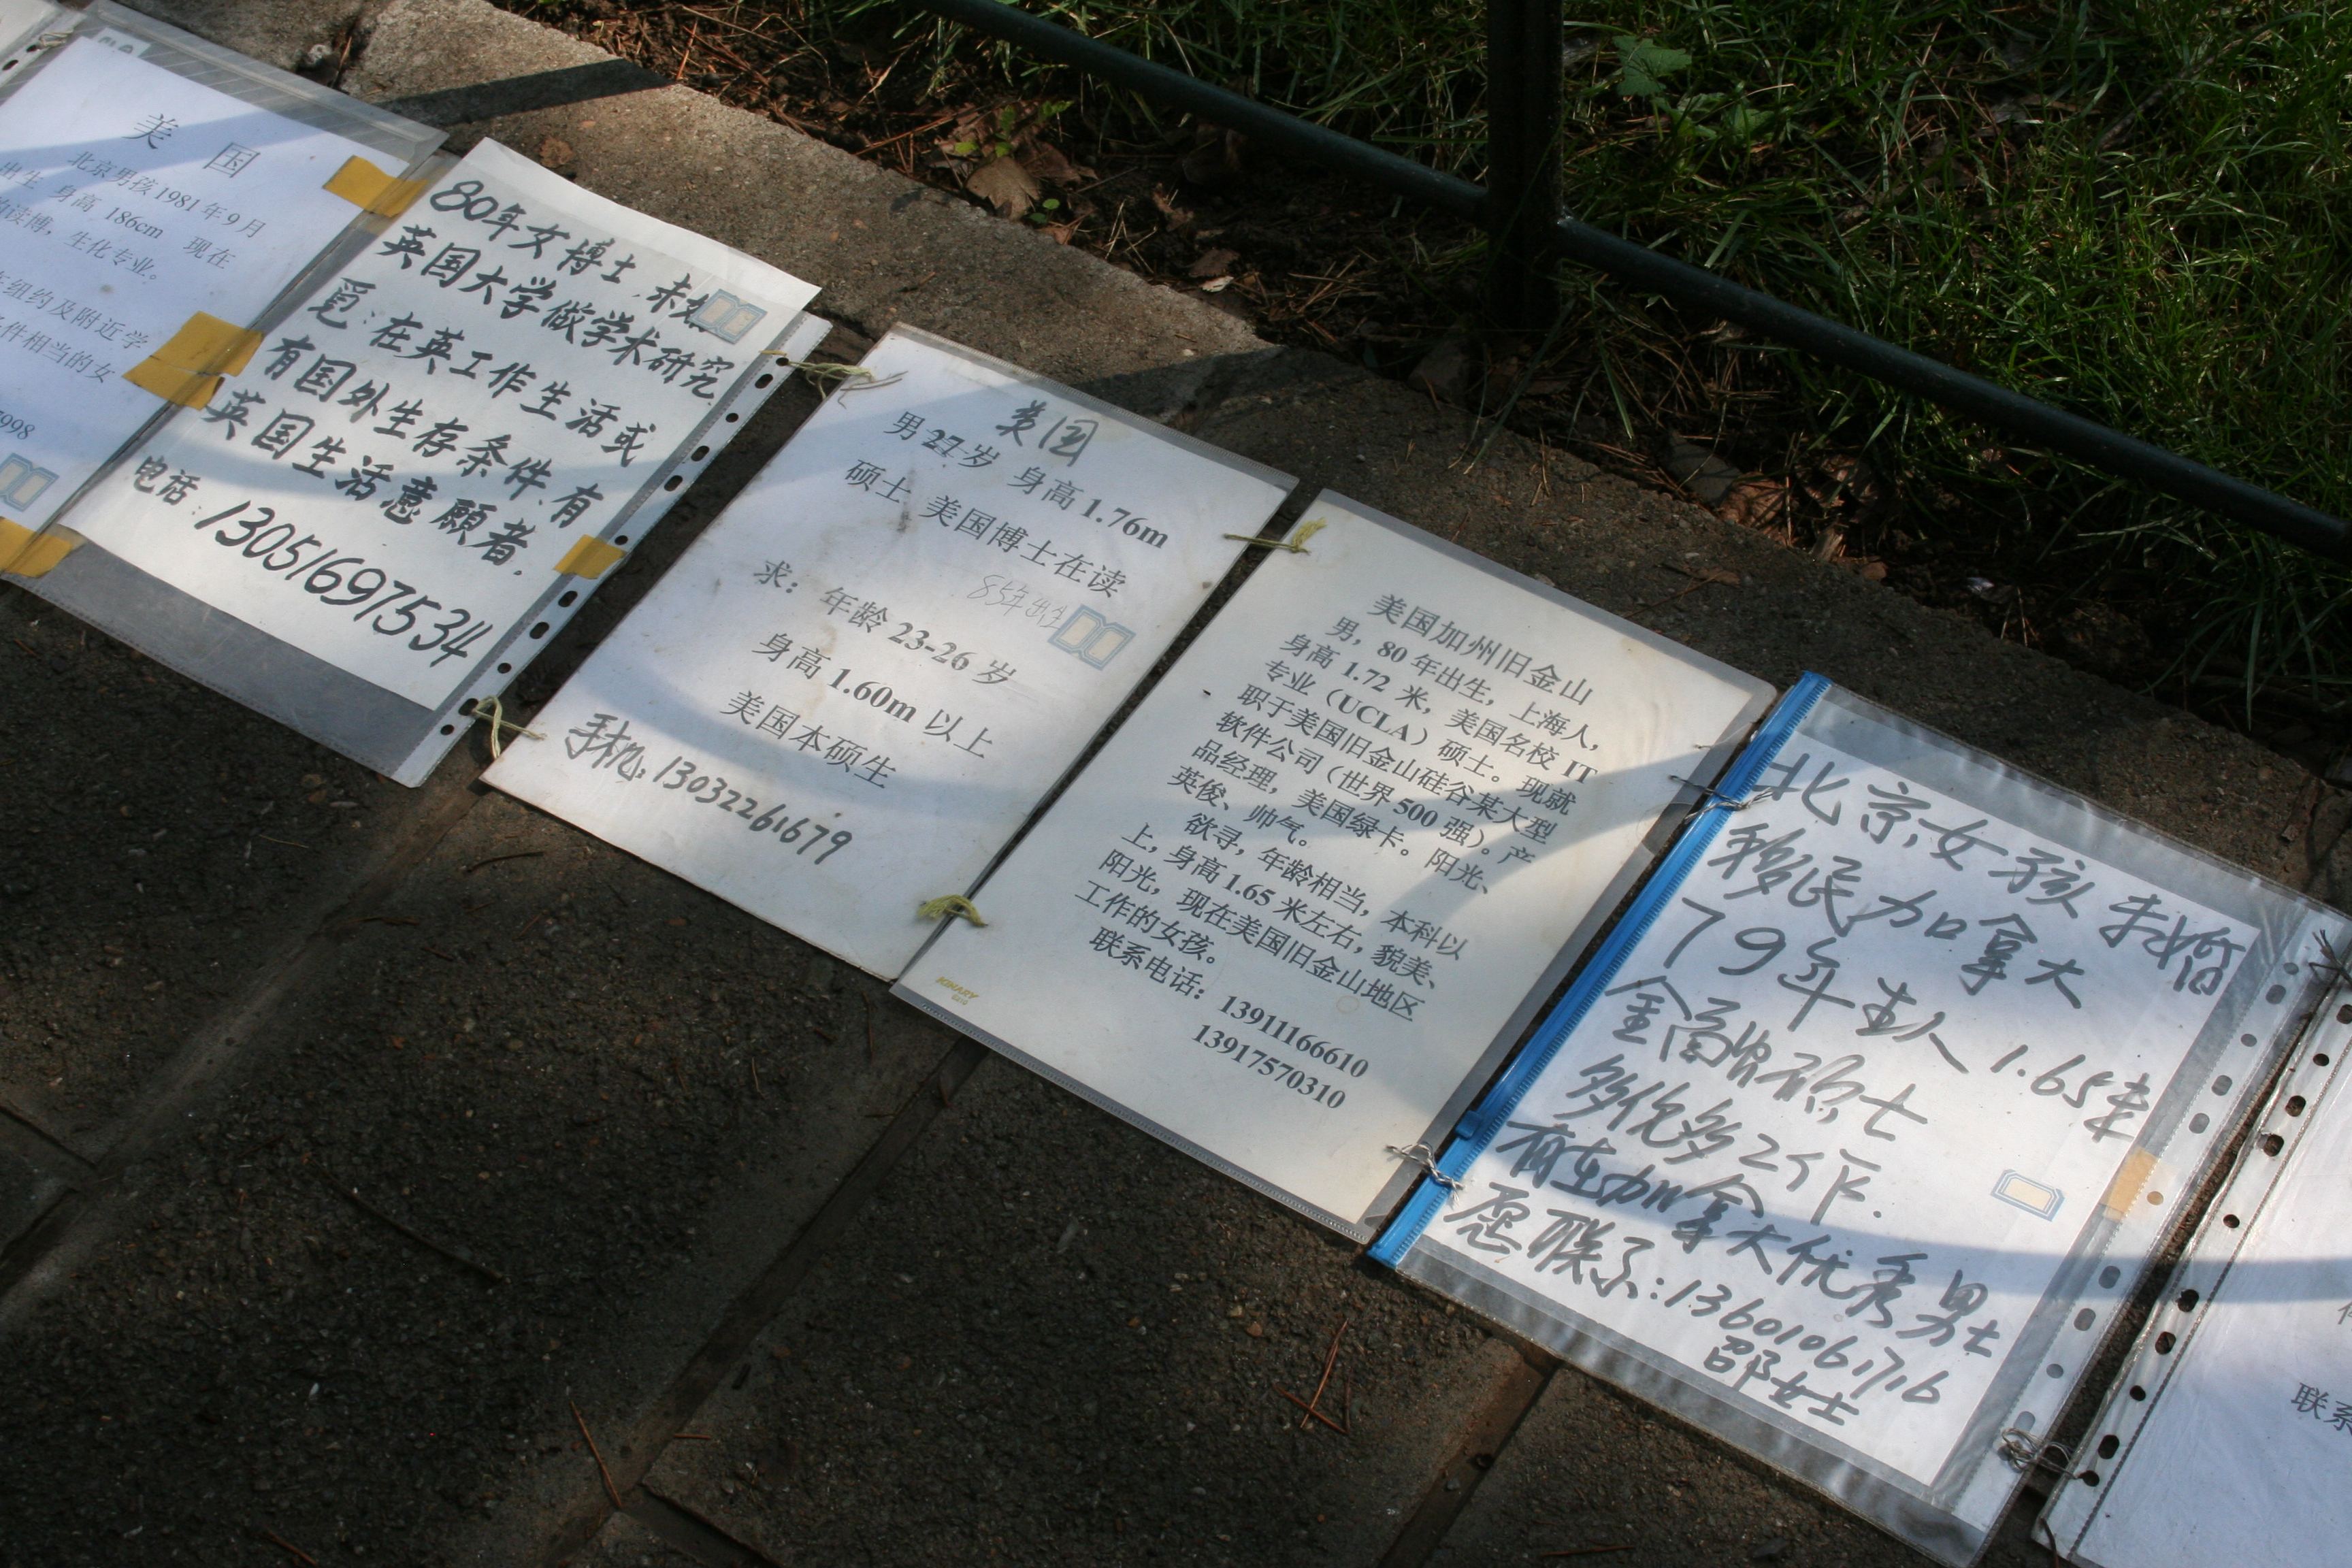 美 国
北京男孩 1981 年 9 月
出生 身高 186cm 现在
读博，生化专业。
纽约及附近学
件相当的女
998
80年女博士,未婚
英国大学做学术研究.
觅:在英工作生活或
有国外生存条件、有
英国生活意願者.
电话:13051697534
美国
男 27 岁 身高 1.76m
硕士 美国博士在读
85年出生
求： 年龄 23-26 岁
身高 1.60m 以上
美国本硕生
手机:13032261679
美国加州旧金山
男，80 年出生，上海人，
身高 1.72 米，美国名校 IT
专业（UCLA）硕士。现就
职于美国旧金山硅谷某大型
软件公司（世界 500 强）。产
品经理，美国绿卡。阳光、
英俊、帅气。
欲寻，年龄相当，本科以
上，身高 1.65 米左右，貌美、
阳光，现在美国旧金山地区
工作的女孩。
联系电话：13911166610
13917570310
KINARY
北京女孩 未婚
移民加拿大
79年生人 1.65米
金融硕士
多伦多工作.
有在加拿大优秀男士
愿联系:13601061716
邵女士
联系